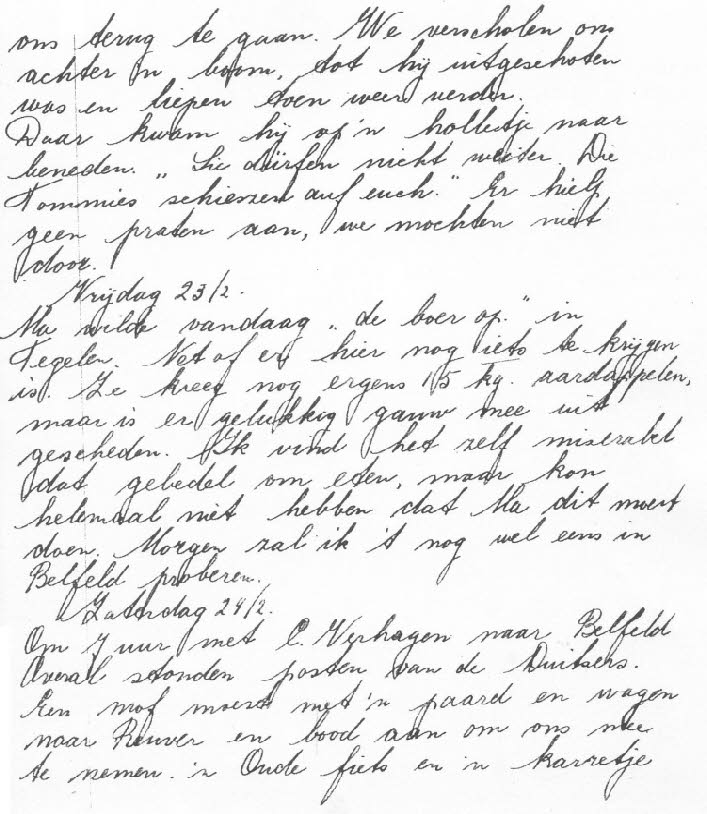 ons terug te gaan. We verscholen ons
achter 'n boom, tot hij uitgeschoten
was en liepen toen weer verder.
Daar kwam hij op 'n holletje naar
beneden. „Sie dürfen nicht weiter. Die
Tommies schiessen auf euch." Er hielp
geen praten aan, we mochten niet
door.
Vrijdag 23/2.
Ma wilde vandaag „de boer op" in
Tegelen. Net of er hier nog iets te krijgen
is. Ze kreeg nog ergens 15 kg. aardappelen,
maar is er gelukkig gauw mee uit
gescheden. Ik vind het zelf miserabel
dat gebedel om eten, maar kon
helemaal niet hebben dat Ma dit moest
doen. Morgen zal ik 't nog wel eens in
Belfeld proberen.
Zaterdag 24/2.
Om 7 uur met C. Verhagen naar Belfeld
Overal stonden posten van de Duitsers.
Een mof moest met 'n paard en wagen
naar Reuver en bood aan om ons mee
te nemen. 'n Oude fiets en 'n karretje